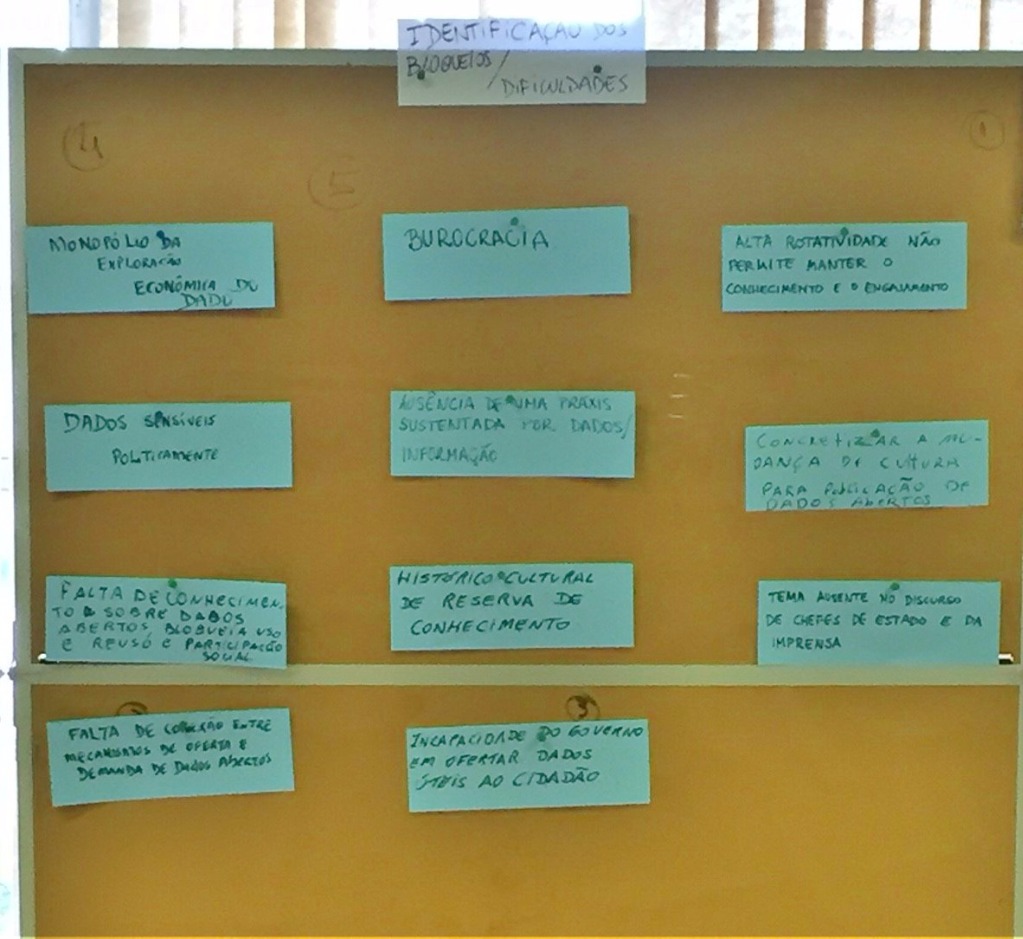 IDENTIFICAÇÃO DOS
BLOQUEIOS/
DIFICULDADES
4
5
1
MONOPÓLIO DA
EXPLORAÇÃO
ECONÔMICA DO
DADO
BUROCRACIA
ALTA ROTATIVIDADE NÃO
PERMITE MANTER O
CONHECIMENTO E O ENGAJAMENTO
DADOS SENSÍVEIS
POLITICAMENTE
AUSÊNCIA DE UMA PRAXIS
SUSTENTADA POR DADOS/
INFORMAÇÃO
CONCRETIZAR A MU-
DANÇA DE CULTURA
PARA PUBLICAÇÃO DE
DADOS ABERTOS
FALTA DE CONHECIMEN-
TO SOBRE DADOS
ABERTOS, BLOQUEIA USO
E REUSO E PARTICIPAÇÃO
SOCIAL
HISTÓRICO CULTURAL
DE RESERVA DE
CONHECIMENTO
TEMA AUSENTE NO DISCURSO
DE CHEFES DE ESTADO E DA
IMPRENSA
3
FALTA DE CONEXÃO ENTRE
MECANISMOS DE OFERTA E
DEMANDA DE DADOS ABERTOS
INCAPACIDADE DO GOVERNO
EM OFERTAR DADOS
ÚTEIS AO CIDADÃO